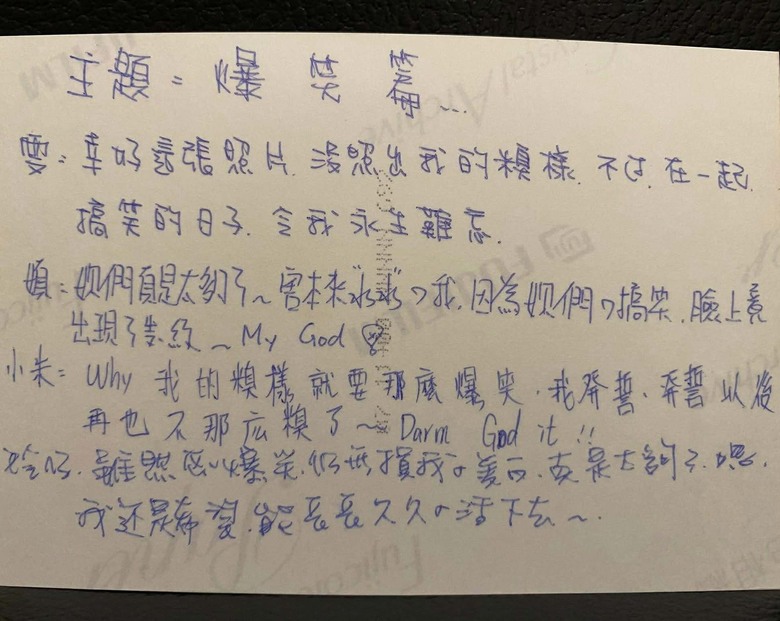 主題=爆笑篇...
雯:幸好這張照片.沒照出我的糗樣.不过.在一起
搞笑的日子.令我永生難忘.
她們真是太夠了~害本來 水水ㄉ我.因為她們ㄉ搞笑.臉上竟
出現了 ~ My God
小朱=Why 我的糗樣就要那麼爆笑.我發誓.發誓以後
再也不那広糗了~Darm God it!!
雖然 爆笑.仍無損我ㄉ美 .真是太夠了.嗯.
我還是希望.能長長久久ㄉ活下去~.
FUJIFILM
Crystal Archive
FUJIFILM